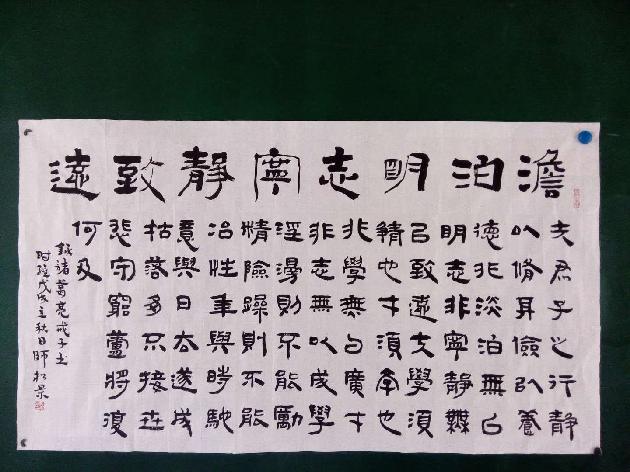 澹泊明志寧靜致遠
夫君子之行靜
以脩身儉以養
德非淡泊無以
明志非寧靜無
以致遠夫學須
靜也才須學也
非學無以廣才
非志無以成學
淫漫則不能勵
精險躁則不能
冶性年與時馳
意與日去遂成
枯落多不接世
悲守窮廬將復
何及
錄諸葛亮戒子書
时臨戊戌立秋日師